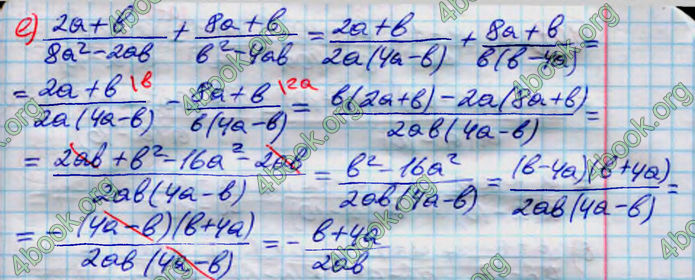 е) (2a+b)/(8a²-2ab) + (8a+b)/(b²-4ab) = (2a+b)/(2a(4a-b)) + (8a+b)/(b(b-4a)) =
= (2a+b)/(2a(4a-b)) \b - (8a+b)/(b(4a-b)) \2a = (b(2a+b)-2a(8a+b))/(2ab(4a-b)) =
= (2ab+b²-16a²-2ab)/(2ab(4a-b)) = (b²-16a²)/(2ab(4a-b)) = ((b-4a)(b+4a))/(2ab(4a-b)) =
= - ((4a-b)(b+4a))/(2ab(4a-b)) = - (b+4a)/(2ab)
4book.org